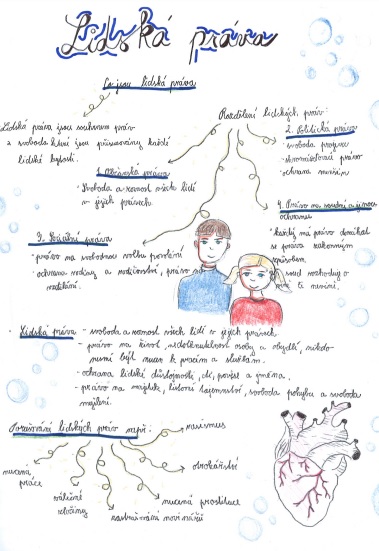 Lidská práva
Co jsou lidská práva
Lidská práva jsou souhrnem práv
a svobod které jsou přisuzovány každé
lidské bytosti.
Rozdělení lidských práv:
1. Občanská práva
- Svoboda a rovnost všech lidí
v jejich právech
2. Politická práva
- svoboda projevu
- shromažďovací právo
- ochrana menšin
3. Sociální práva
- právo na svobodnou volbu povolání
- ochrana rodiny a rodičovství, právo na
vzdělání.
4. Právo na soudní a jinou
ochranu
- každý má právo domáhat
se práva zákonným
způsobem.
soud rozhoduje o
vině či nevině.
- Lidská práva - svoboda a rovnost všech lidí v jejich právech
- právo na život, nedotknutelnost osoby a obydlí, nikdo
nesmí být nucen k pracím a službám.
- ochrana lidské důstojnosti, cti, pověst a jména.
- právo na majetek, listovní tajemství, svoboda pohybu a svoboda
myšlení.
Porušování lidských práv např:
rasismus
otrokářství
nucená prostituce
nucená
práce
válečné
zločiny
zastrašování novinářů